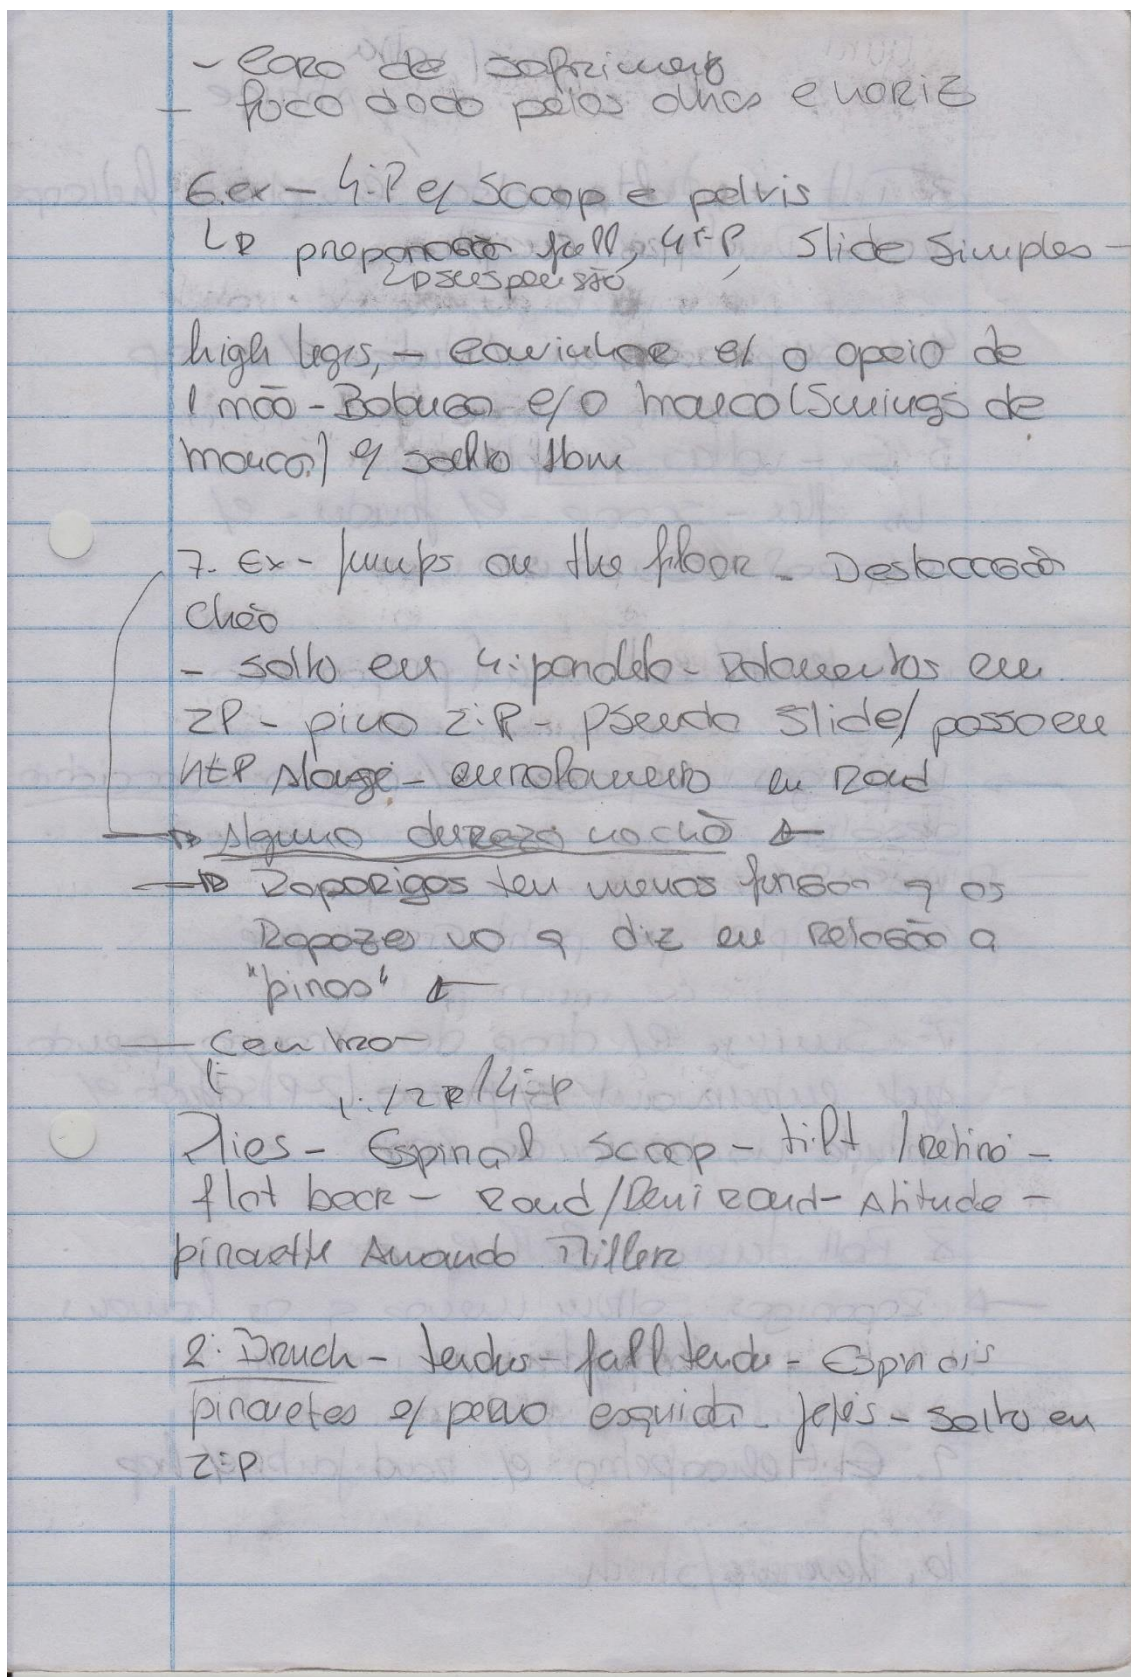 - Cara de sofrimento
- foco dado pelos olhos e nariz
6.ex - 4.ªP c/ Scoop e pelvis
preparação fall, 4.ªP, Slide Simples -
suspensão
high legs, - caminhar c/ o apoio de
1 mão - Balanço c/o macaco (Swings de
macaco) c/ salto
7. Ex - jumps on the floor - Deslocação
Chão
- salto em 4.ª paralela - Rolamentos em
2P - pino 2.ªP - Pseudo Slide/ passo em
4ªP - enrolamento en Rond
Alguma dureza no chão
Raparigas tem menos força q os
Rapazes no q diz em Relação a
"pinos"
- Centro -
1.ª/2P/4.ªP
Plies - Espiral Scoop - tilt / retiré -
flat back - Rond/Demi Rond - Atitude -
pirouette Amando
2. - tendus - fall tendu - Espirais
piruetes c/ perna esquerda - jetés - salto em
2.ªP